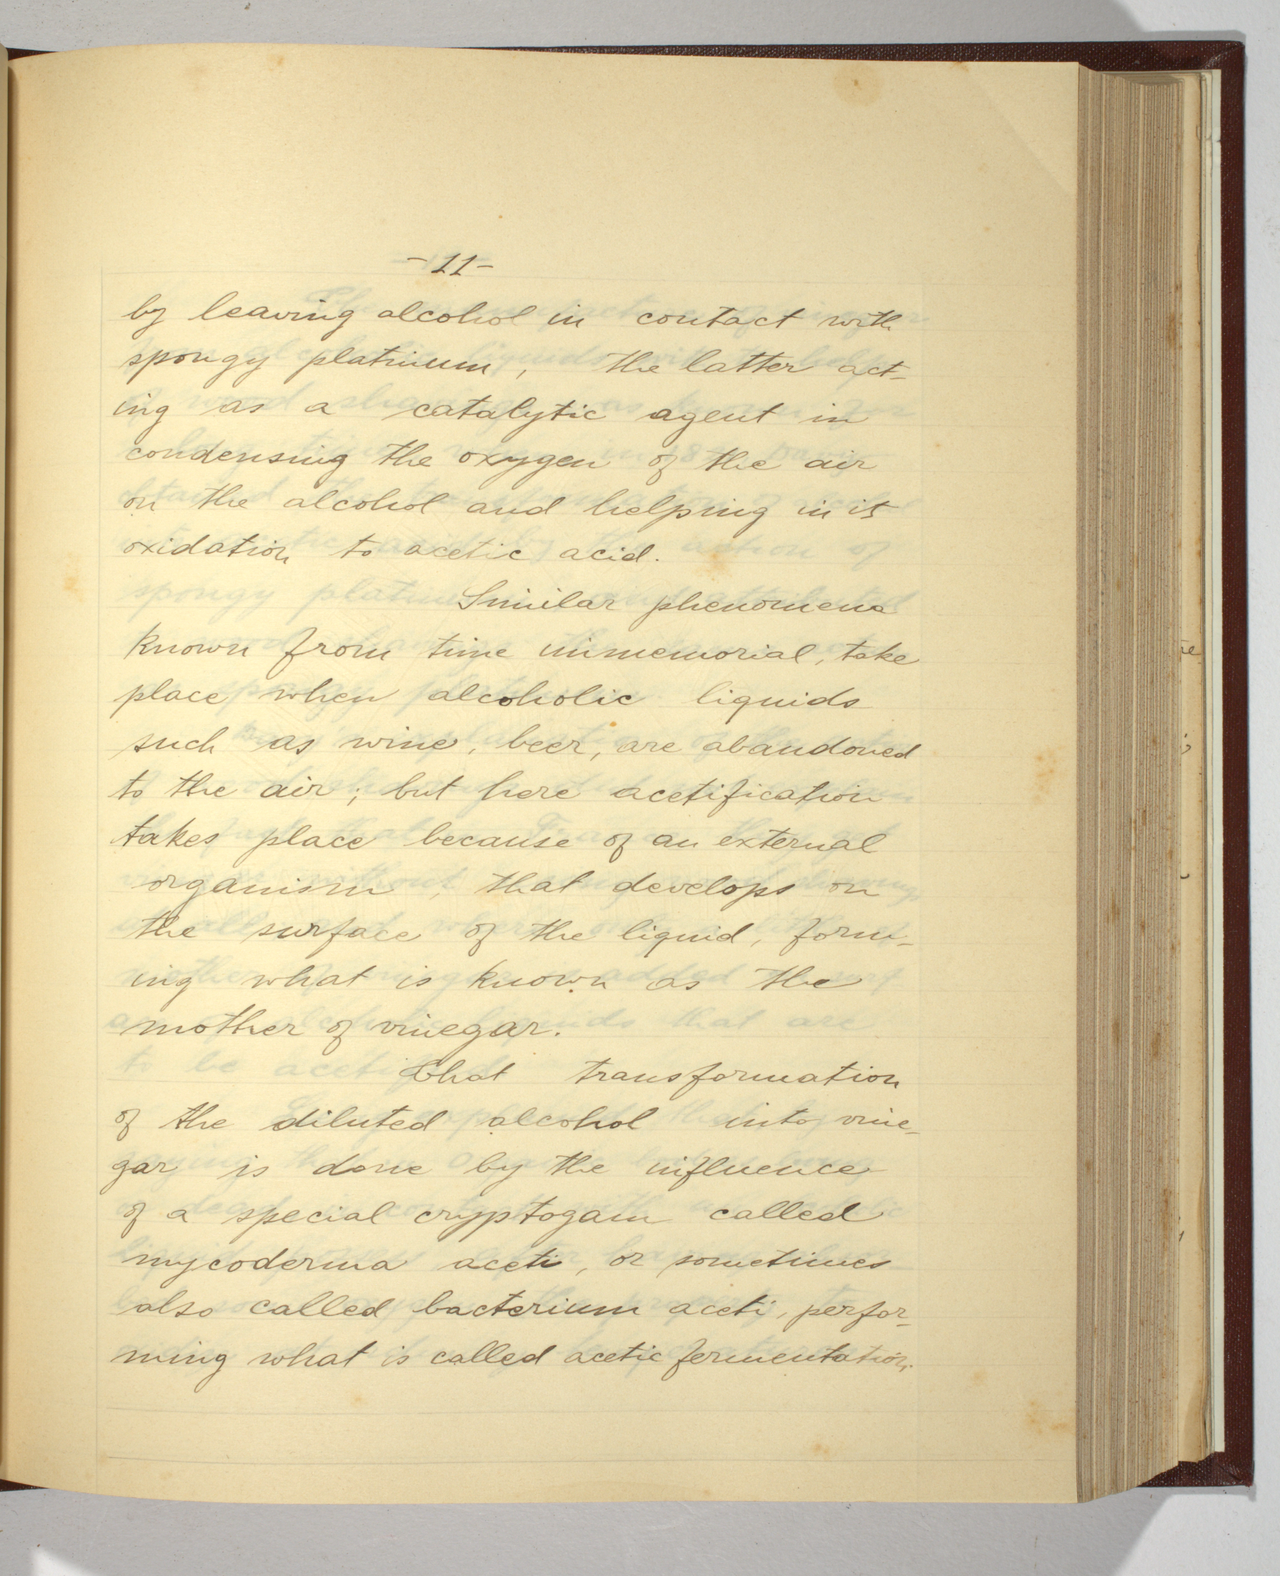 -11-
by leaving alcohol in contact with
spongy platinium, the latter act-
ing as a catalytic agent in
condensing the oxygen of the air
on the alcohol and helping in its
oxidation to acetic acid.
Similar phenomena
known from time immemorial, take
place when alcoholic liquids
such as wine, beer, are abandoned
to the air; but here acetification
takes place because of an external
organism, that develops on
the surface of the liquid, form-
ing what is known as the
mother of vinegar.
That transformation
of the diluted alcohol into vine-
gar is done by the influence
of a special cryptogam called
mycoderma aceti, or sometimes
also called bacterium aceti, perfor-
ming what is called acetic fermentation.